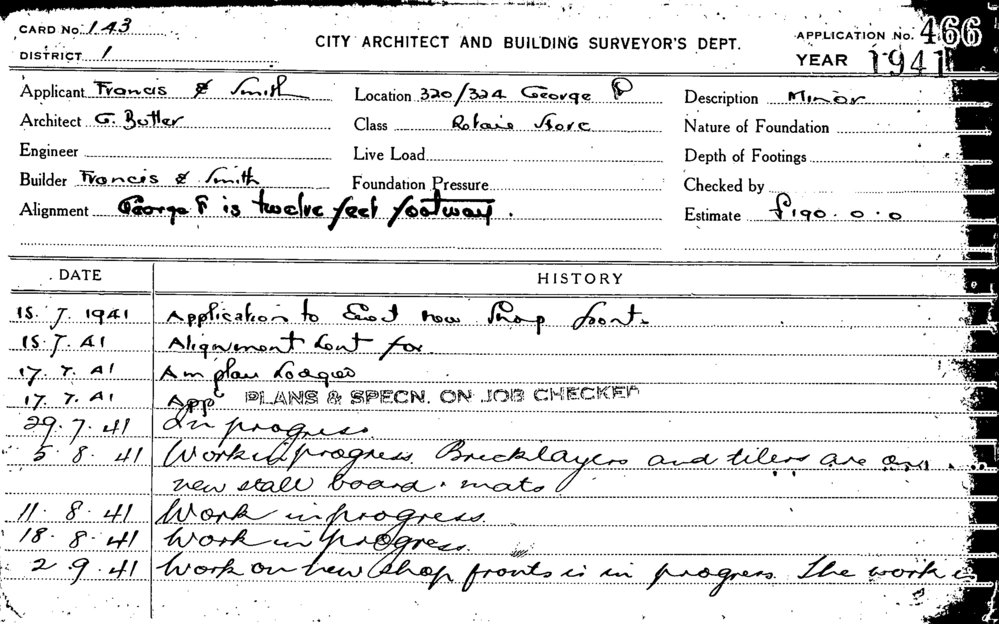 CARD No. 143
DISTRICT 1
CITY ARCHITECT AND BUILDING SURVEYOR'S DEPT.
APPLICATION No. 466
YEAR 1941
Applicant Francis & Smith
Location 320/324 George St
Description Minor
Architect G. Butler
Class Retail Store
Nature of Foundation
Engineer
Live Load
Depth of Footings
Builder Francis & Smith
Foundation Pressure
Checked by
Alignment George St is twelve feet footway.
Estimate £190.0.0
DATE HISTORY
15.7.1941 Application to Erect new Shop front.
15.7.41 Alignment sent for
17.7.41 Am plan Lodged
17.7.41 Appd PLANS & SPECN. ON JOB CHECKED
29.7.41 In progress
5.8.41 Work in progress. Bricklayers and tilers are on
new stall board. mats
11.8.41 Work in progress.
18.8.41 Work in progress.
2.9.41 Work on new shop fronts is in progress. The work is